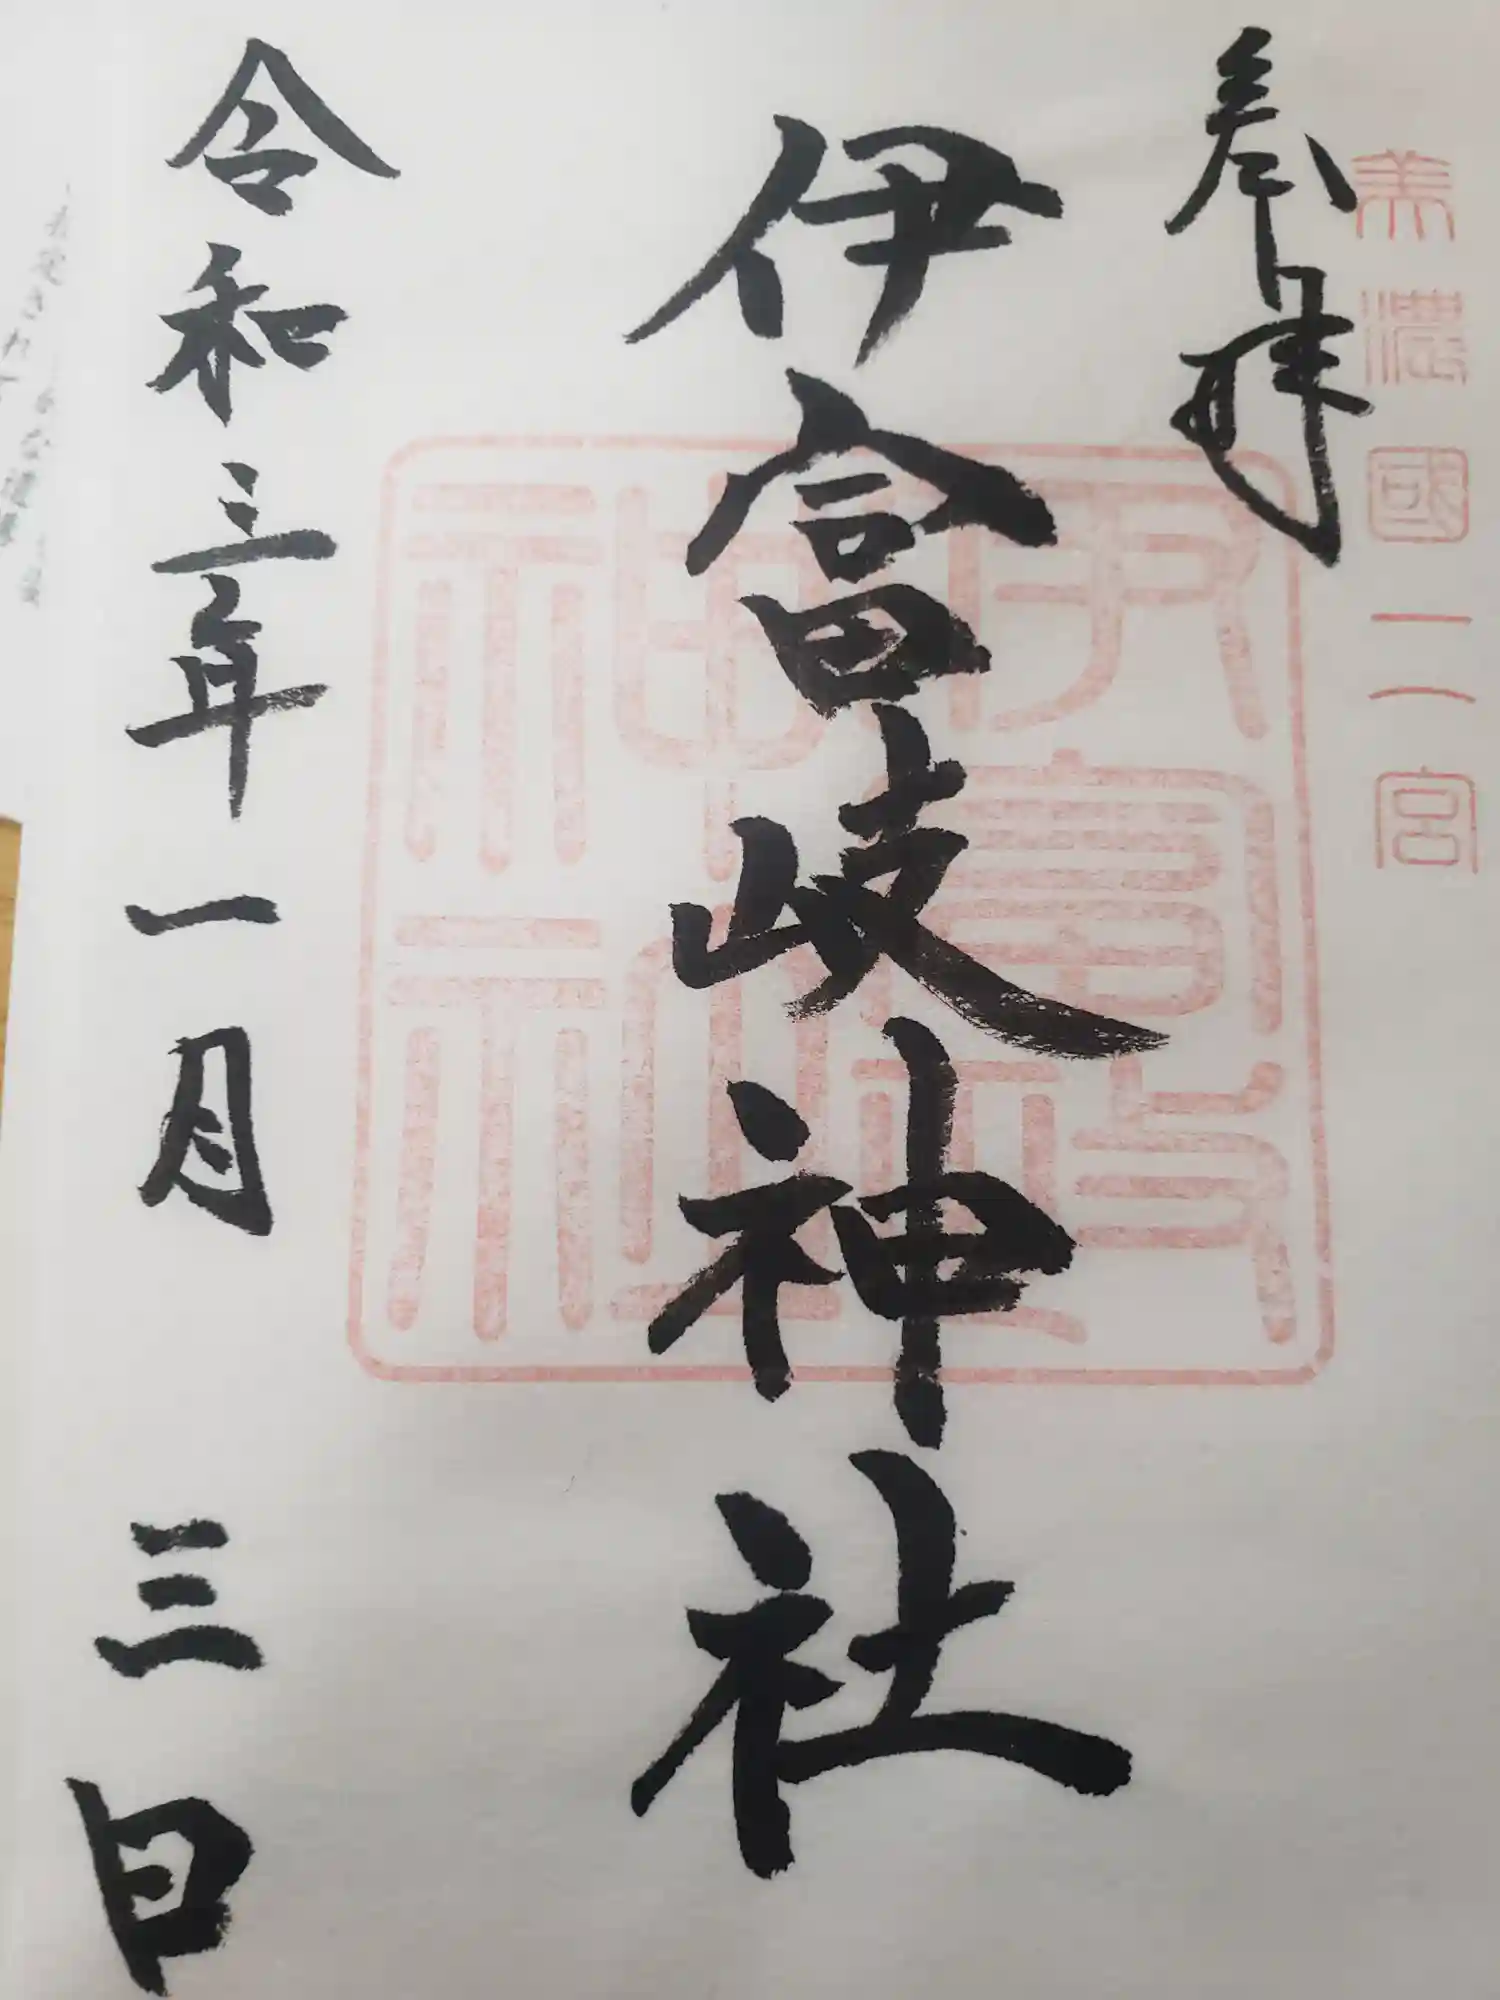 美濃國二宮
奉拜
伊富岐神社
伊富岐
神社
令和三年一月三日